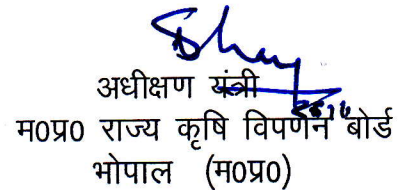 अधीक्षण यंत्री
म0प्र0 राज्य कृषि विपणन बोर्ड
भोपाल (म0प्र0)